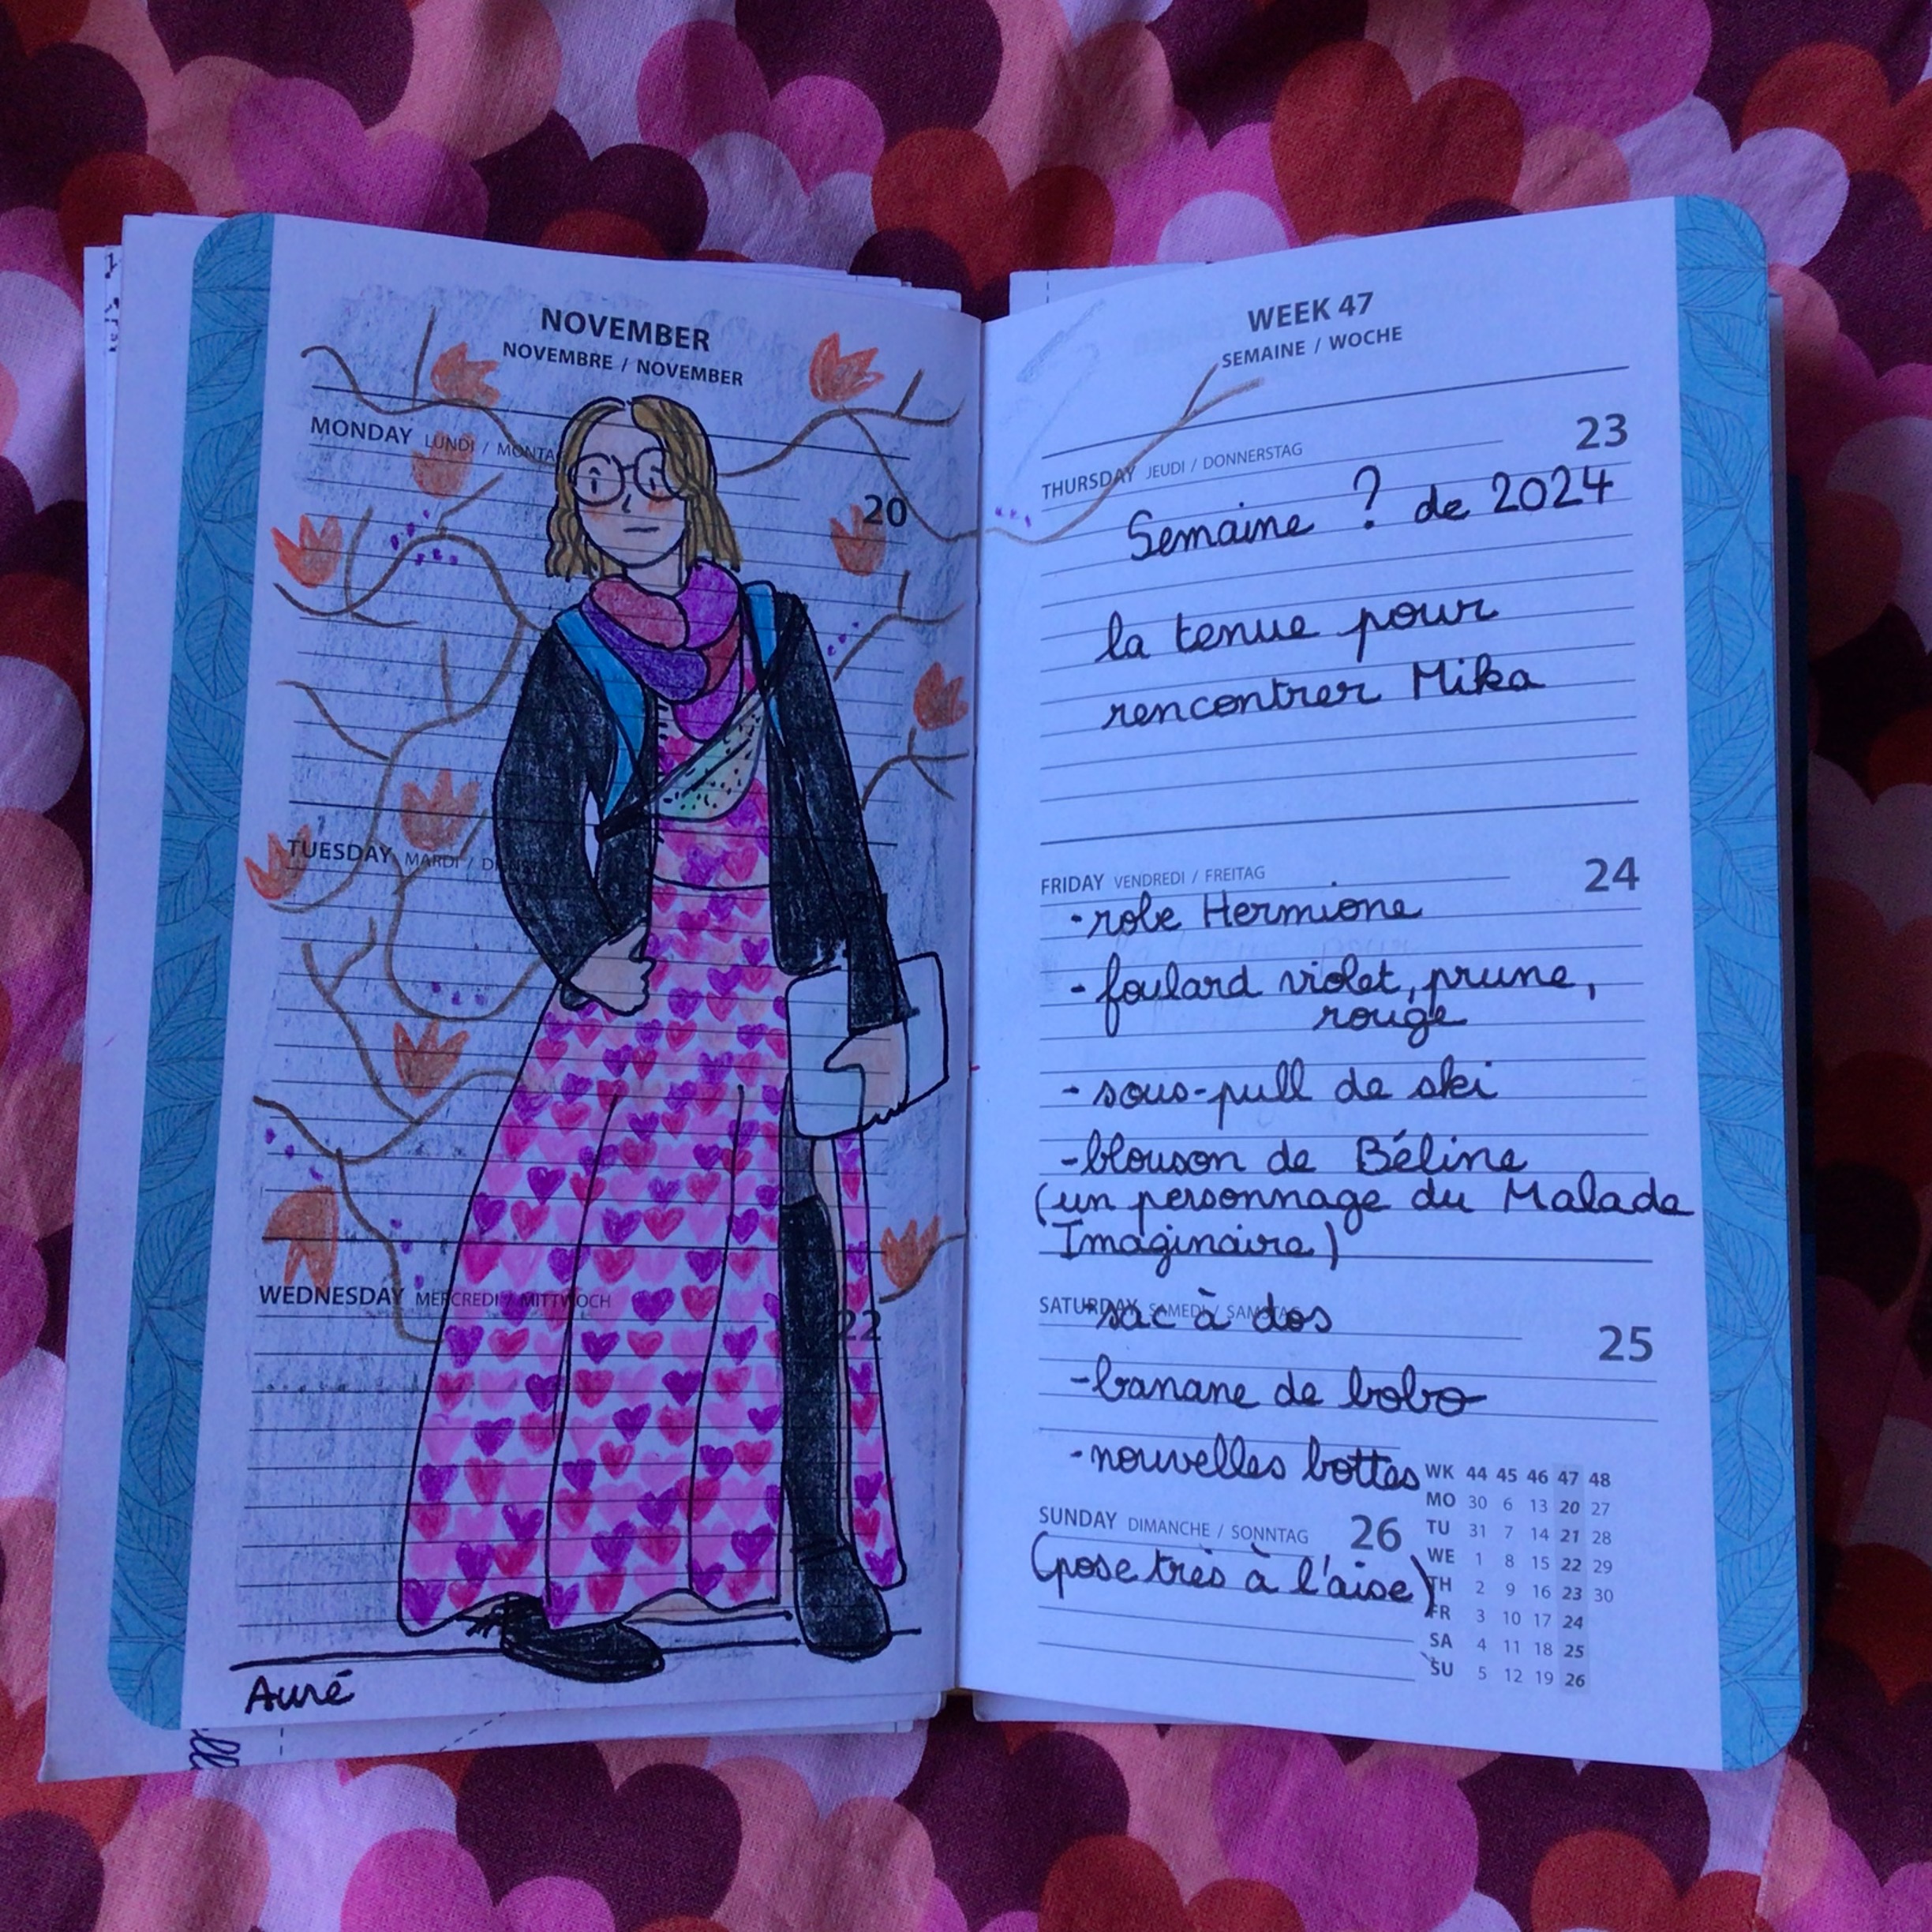 NOVEMBER
NOVEMBRE / NOVEMBER
MONDAY LUNDI / MONTA
20
TUESDAY MARDI /
WEDNESDAY MERCREDI / MITTWOCH
22
Auré
WEEK 47
SEMAINE / WOCHE
THURSDAY JEUDI / DONNERSTAG
23
Semaine ? de 2024
la tenue pour
rencontrer Mika
FRIDAY VENDREDI / FREITAG
24
- robe Hermione
- foulard violet, prune,
rouge
- sous-pull de ski
- blouson de Béline
(un personnage du Malade
Imaginaire)
SATURDAY SAMEDI / SAMSTAG
25
- sac à dos
- banane de bobo
- nouvelles bottes
SUNDAY DIMANCHE / SONNTAG
26
(pose très à l'aise)
WK 44 45 46 47 48
MO 30 6 13 20 27
TU 31 7 14 21 28
WE 1 8 15 22 29
TH 2 9 16 23 30
FR 3 10 17 24
SA 4 11 18 25
SU 5 12 19 26